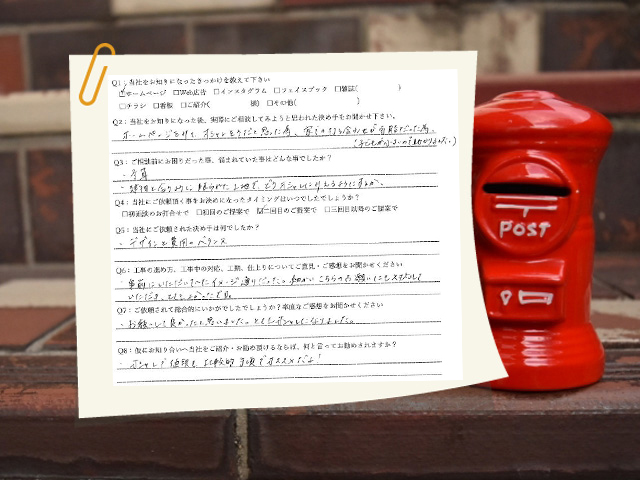 Q1：当社をお知りになったきっかけを教えて下さい
☑ホームページ □Web広告 □インスタグラム □フェイスブック □雑誌( )
□チラシ □看板 □ご紹介( 様) □その他( )
Q2：当社をお知りになった後、実際にご相談してみようと思われた決め手をお聞かせ下さい。
ホームページを見て、オシャレそうだと思った為、家での打ち合わせが可能だった為。
(子どもが小さいので助かりました。)
Q3：ご相談前にお困りだった事、悩まれていた事はどんな事でしたか？
・予算
Q4：当社にご依頼頂く事をお決めになったタイミングはいつでしたでしょうか？
□初面談のお打合せで □初回のご提案で ☑二回目のご提案で □三回目以降のご提案で
Q5：当社にご依頼された決め手は何でしたか？
・デザインと費用のバランス
Q6：工事の進め方、工事中の対応、工期、仕上りについてご意見・ご感想をお聞かせください
・事前にいただいていたイメージ通りだった。細かいこちらのお願いにも対応して
いただき、とてもよかったです。
Q7：ご依頼されて総合的にいかがでしたでしょうか？率直なご感想をお聞かせください
・お願いして良かったと思いました。とてもオシャレになりました。
Q8：仮にお知り合いへ当社をご紹介・お勧め頂けるならば、何と言ってお勧めされますか？
・オシャレで値段も比較的手頃でオススメだよ！
POST